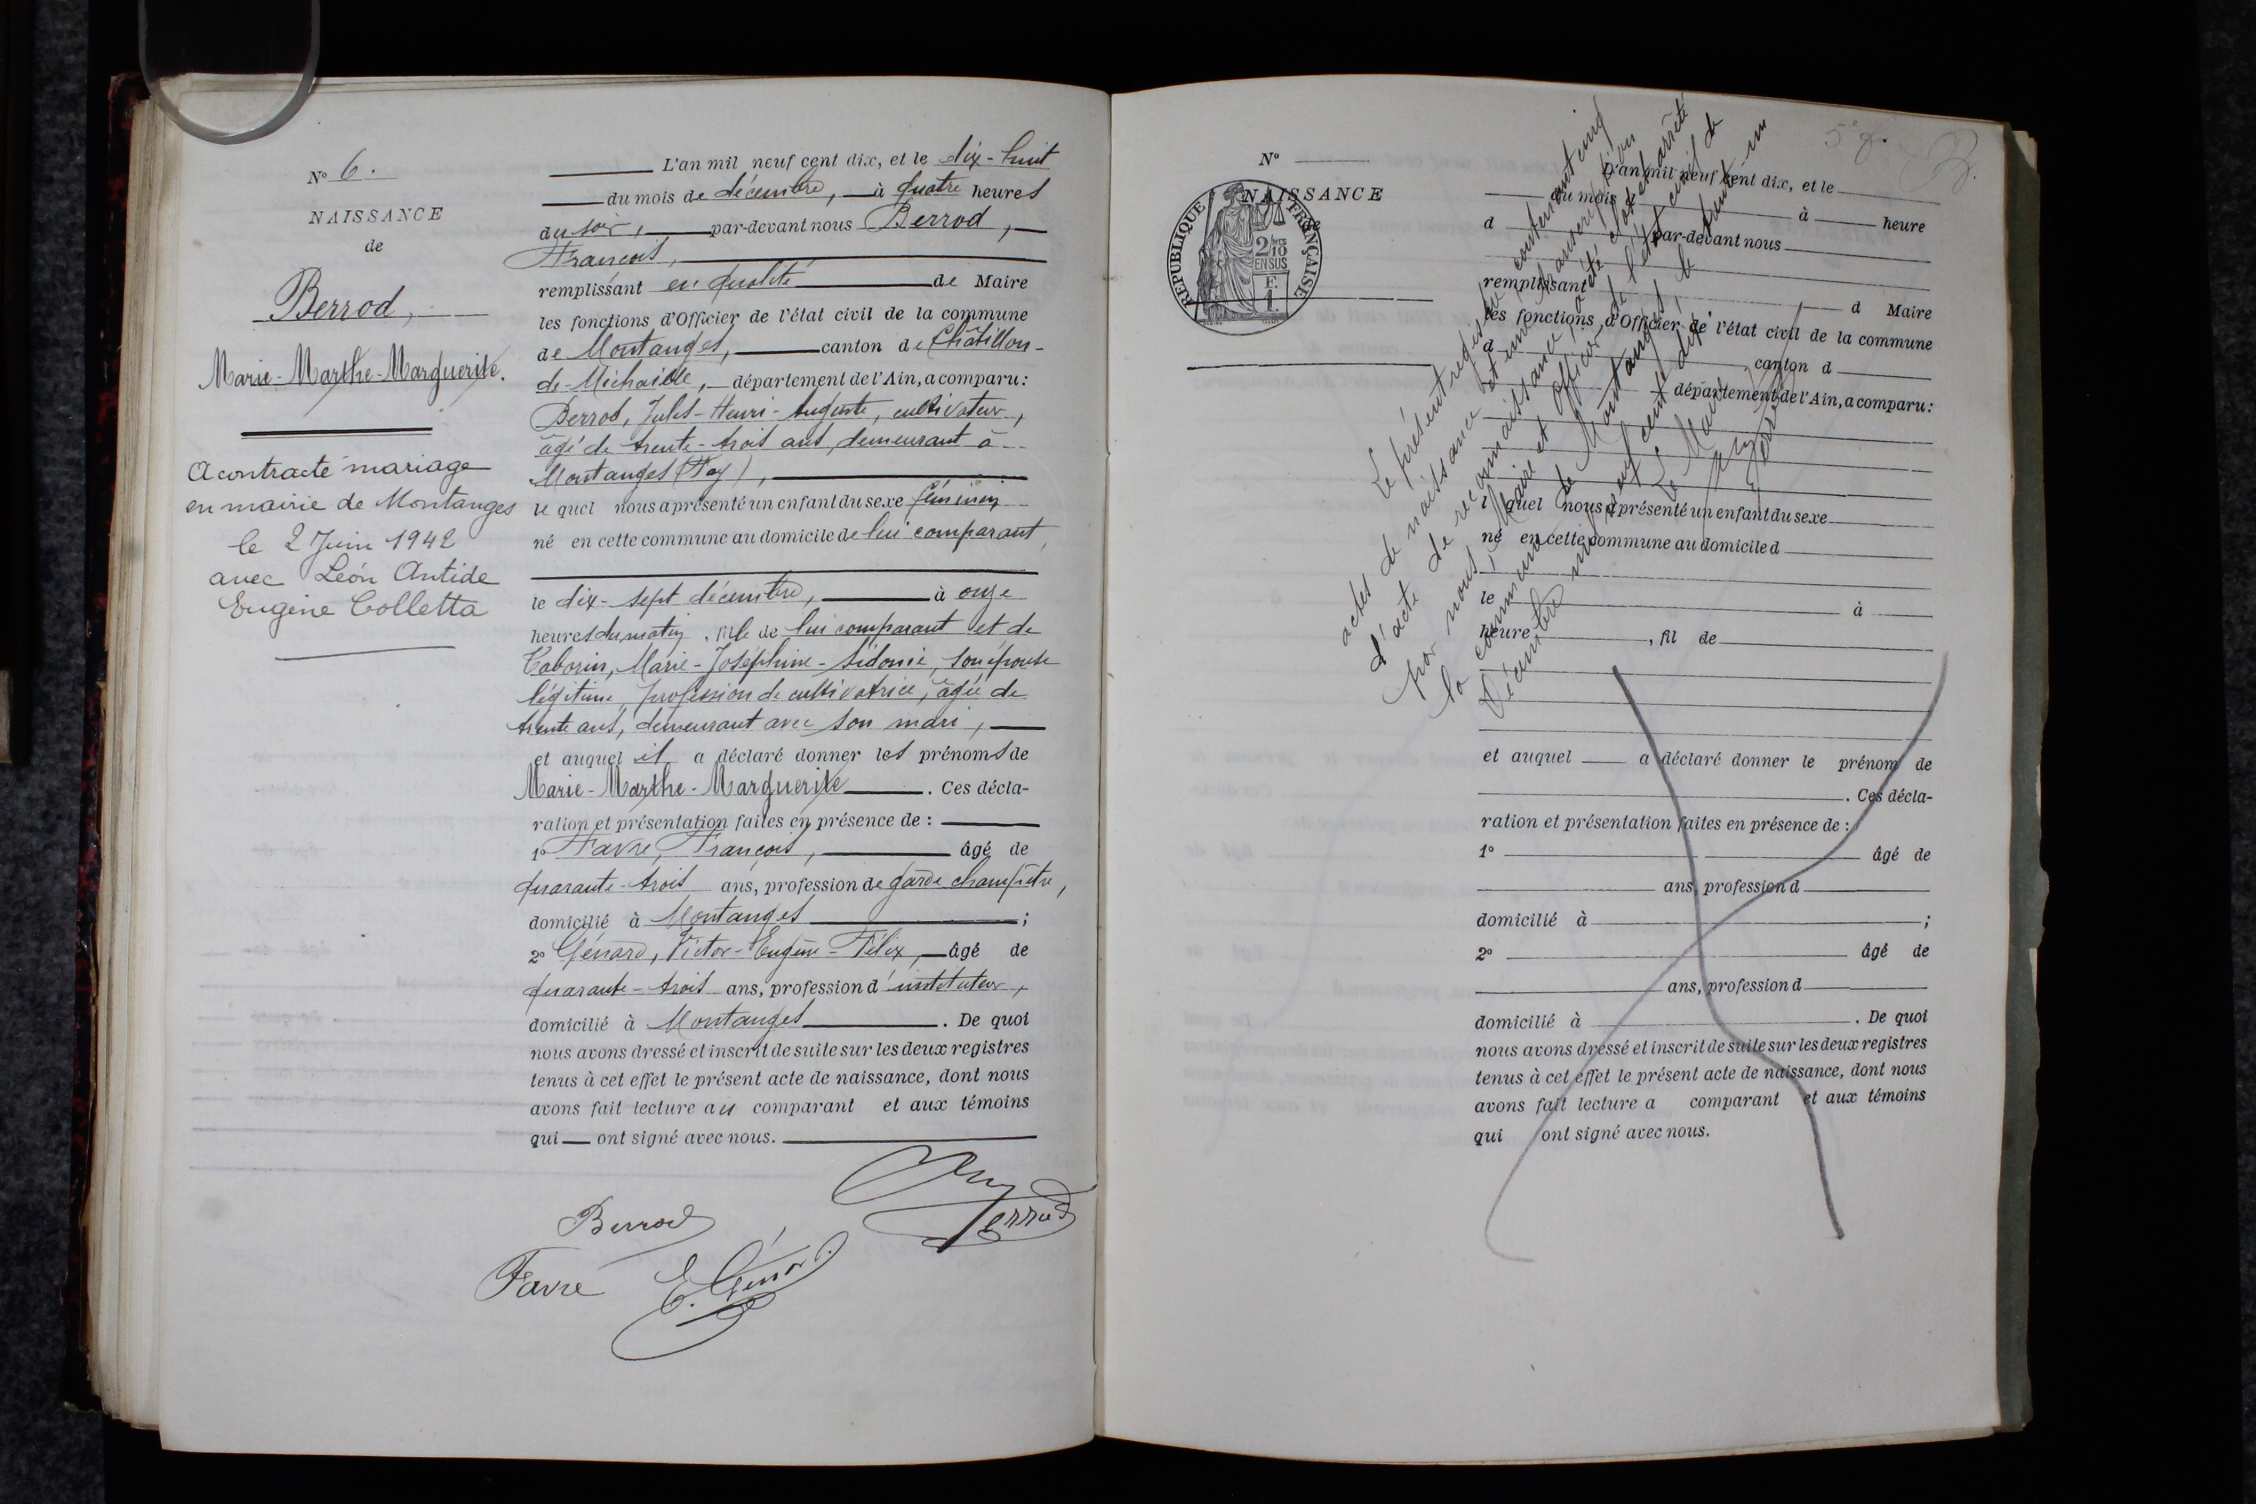 N° 6.
NAISSANCE
de
Berrod,
Marie-Marthe-Marguerite.
A contracté mariage
en mairie de Montanges
le 2 Juin 1942
avec Léon Antide
Eugène Colletta
L'an mil neuf cent dix, et le dix-huit
du mois de décembre, à quatre heures
du soir, par-devant nous Berrod,
François,
remplissant en qualité de Maire
les fonctions d'Officier de l'état civil de la commune
de Montanges, canton de Châtillon-
de-Michaille, département de l'Ain, a comparu:
Berrod, Jules-Henri-Auguste, cultivateur,
âgé de trente-trois ans, demeurant à
Montanges (Fay),
le quel nous a présenté un enfant du sexe féminin
né en cette commune au domicile de lui comparant,
le dix-sept décembre, à onze
heures du matin, fille de lui comparant et de
Caborin, Marie-Joséphine-Sidonie, son épouse
légitime, profession de cultivatrice, âgée de
trente ans, demeurant avec son mari,
et auquel il a déclaré donner les prénoms de
Marie-Marthe-Marguerite. Ces décla-
ration et présentation faites en présence de :
1° Favre, François, âgé de
quarante-trois ans, profession de garde champêtre,
domicilié à Montanges ;
2° Génard, Victor-Eugène-Félix, âgé de
quarante-trois ans, profession d'instituteur,
domicilié à Montanges. De quoi
nous avons dressé et inscrit de suite sur les deux registres
tenus à cet effet le présent acte de naissance, dont nous
avons fait lecture au comparant et aux témoins
qui ont signé avec nous.
Berrod
Berrod
Favre
E. Génard
N°
NAISSANCE
RÉPUBLIQUE FRANÇAISE
2/10
EN SUS
F.
1
5e g.
L'an mil neuf cent dix, et le
du mois d à heure
d par-devant nous
remplissant d Maire
les fonctions d'Officier de l'état civil de la commune
d canton d
département de l'Ain, a comparu:
l quel nous a présenté un enfant du sexe
né en cette commune au domicile d
le à
heure , fil de
et auquel a déclaré donner le prénom de
. Ces décla-
ration et présentation faites en présence de :
1° âgé de
ans, profession d
domicilié à ;
2° âgé de
ans, profession d
domicilié à . De quoi
nous avons dressé et inscrit de suite sur les deux registres
tenus à cet effet le présent acte de naissance, dont nous
avons fait lecture a comparant et aux témoins
qui ont signé avec nous.
Le présent registre contenant cinq
actes de naissance et une transcription
d'acte de reconnaissance, a été clos et arrêté
par nous, Maire et Officier de l'état civil de
la commune de Montanges le trente-un
Décembre mil neuf cent dix.
Le Maire,
Berrod